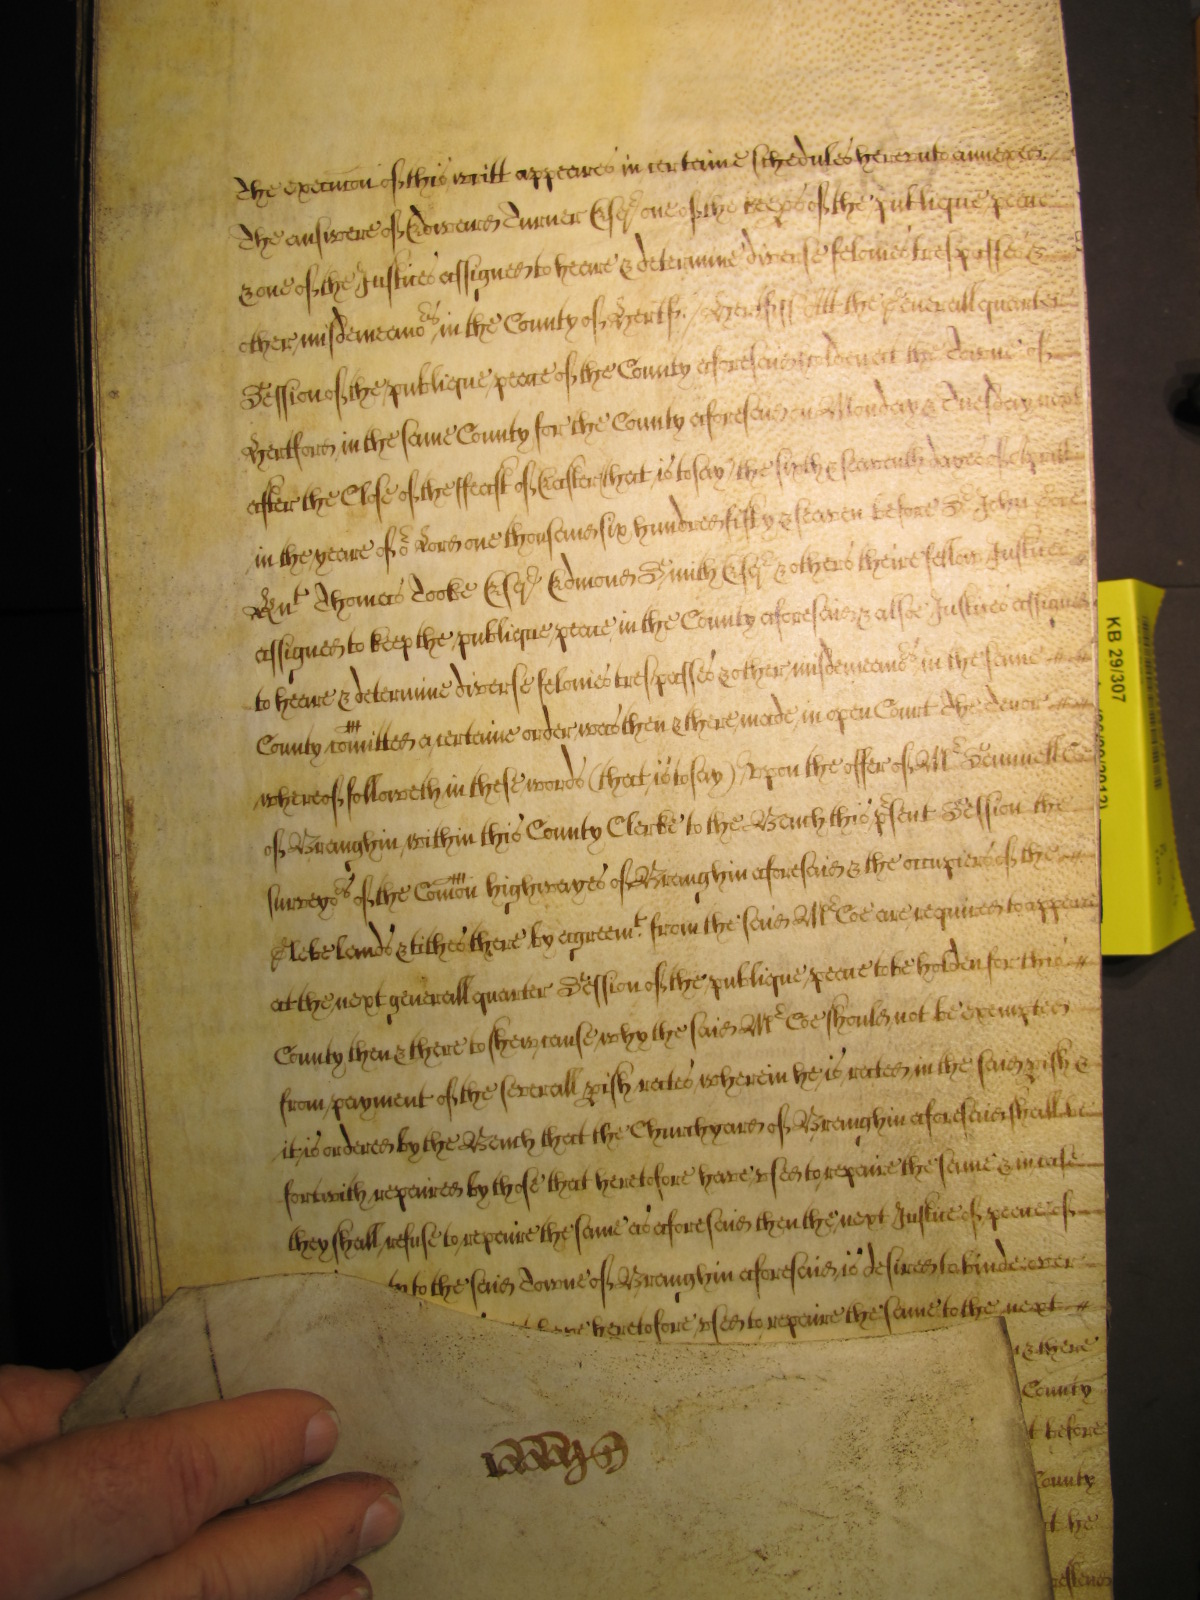 The execucon of this writt appeares in certaine schedules hereunto annexed
The answere of Edward Turner Esqr one of the keeps of the publique peace
& one of the Justices assigned to heare & determine diverse felonies trespasses &
other misdemeanors in the County of Hertf. / Hertf ss Att the generall quarter
Session of the publique peace of the County aforesaid holden att the Towne of
Hertford in the same County for the County aforesaid on Monday & Tuesday next
after the Close of the ffeast of Easter that is to say the sixth & seaventh dayes of Aprill
in the yeare of or Lord one thousand six hundred fifty & seaven before Sr John
Knt Thomas Tooke Esqr Edmond Smith Esqr & others theire fellow Justices
assigned to keep the publique peace in the County aforesaid & alsoe Justices assigned
to heare & determine diverse felonies trespasses & other misdemeanors in the same
County comitted a certaine order was then & there made in open Court The tenor
whereof followeth in these words (that is to say) Upon the offer of Mr Samuell Coe
of Braughin within this County Clerke to the Bench this psent Session the
surveyors of the Comon highwayes of Braughin aforesaid & the occupiers of the
Glebe lands & tithes there by agreemt. from the said Mr Coe are required to appeare
at the next generall quarter Session of the publique peace to be holden for this
County then & there to shew cause why the said Mr Coe should not be exempted
from payment of the severall pish rates wherein he is rated in the said pish &
it is ordered by the Bench that the Churchyard of Braughin aforesaid shall be
forthwith repaired by those that heretofore have used to repaire the same & in case
they shall refuse to repaire the same as aforesaid then the next Justice of peace of
to the said Towne of Braughin aforesaid is desired to binde over
heretofore used to repaire the same to the next
& there
County
before
County
he
KB 29/307